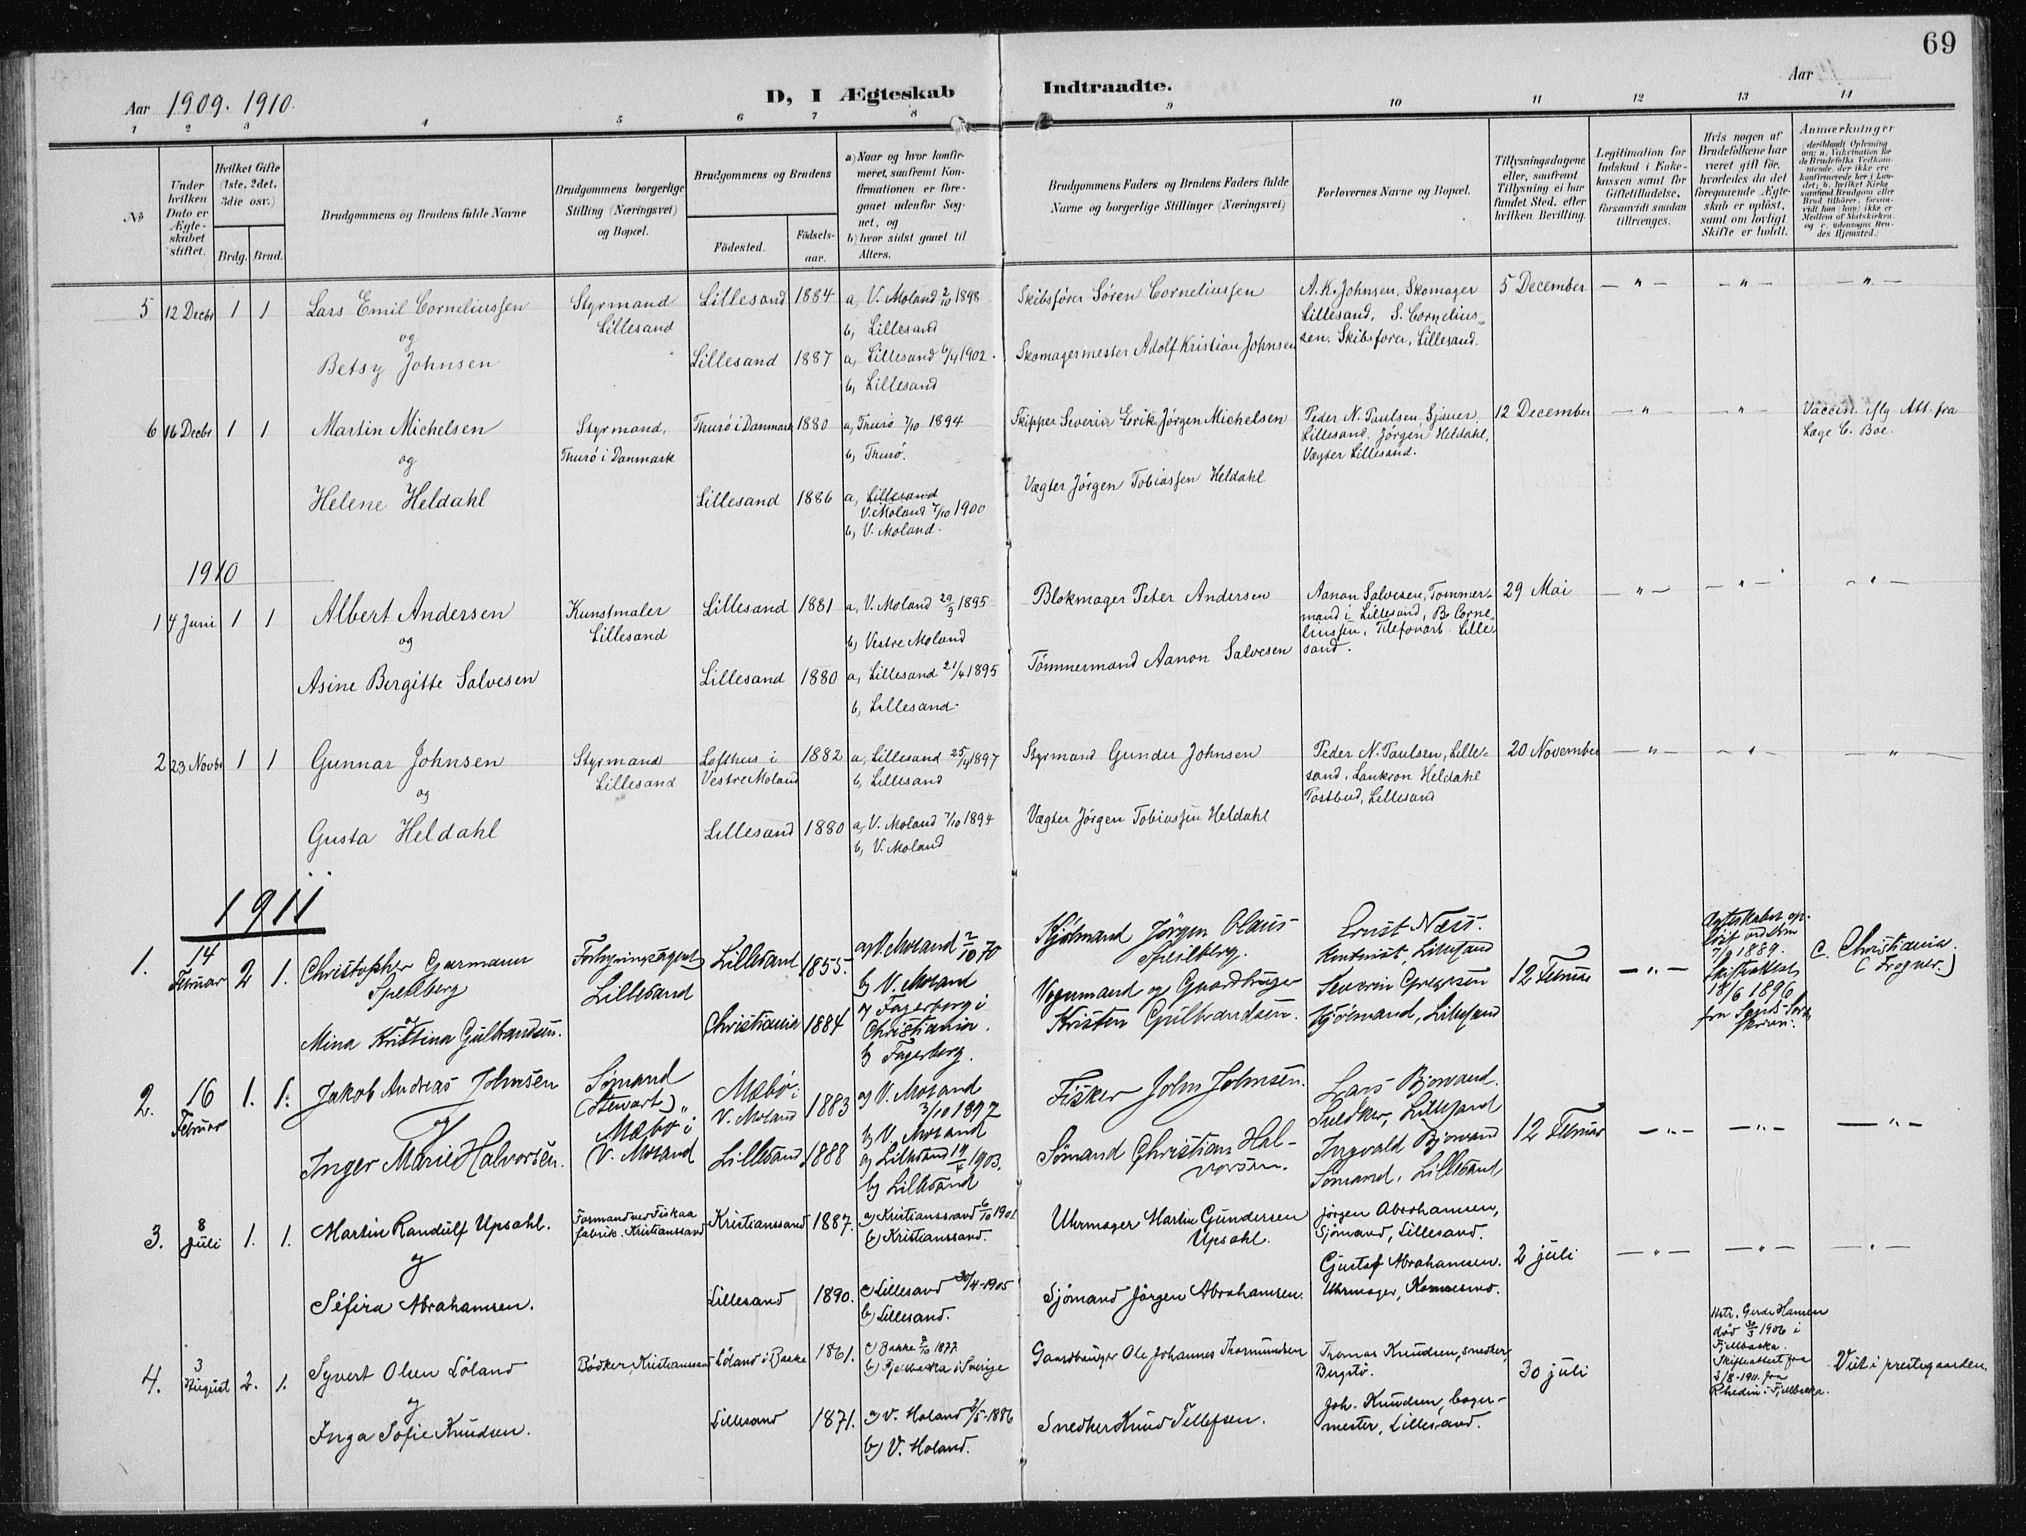 69
Aar 1909. 1910.
D, I Ægteskab Indtraadte.
Aar
1 2 3 4 5 6 7 8 9 10 11 12 13 14
No
Under hvilken Dato er Ægteskabet stiftet.
Hvilket Gifte (1ste, 2det, 3die osv.)
Brdg. Brud.
Brudgommens og Brudens fulde Navne
Brudgommens borgerlige Stilling (Næringsvei) og Bopæl.
Brudgommens og Brudens
Fødested.
Fødselsaar.
a) Naar og hvor konfirmeret, saafremt Konfirmationen er foregaaet udenfor Sognet, og
b) hvor sidst gaaet til Alters.
Brudgommens Faders og Brudens Faders fulde Navne og borgerlige Stillinger (Næringsvei)
Forlovernes Navne og Bopæl.
Tillysningsdagene eller, saafremt Tillysning ei har fundet Sted, efter hvilken Bevilling.
Legitimation for Indskud i Enkekassen samt for Giftetilladelse, forsaavidt saadan tiltrænges.
Hvis nogen af Brudefolkene har været gift før, hvorledes da det foregaaende Ægteskab er opløst, samt om lovligt Skifte er holdt.
Anmærkninger
5 12 Decbr 1 1 Lars Emil Corneliussen
og
Betsy Johnsen
Styrmand
Lillesand
Lillesand 1884
Lillesand 1887
a, V. Moland 2/10 1898
b, Lillesand
a, Lillesand 6/4 1902.
b, Lillesand
Skibsfører Søren Corneliussen
Skomagermester Adolf Kristian Johnsen
A. K. Johnsen, Skomager
Lillesand, S. Cornelius=
sen, Skibsfører, Lillesand.
5 December — " — — " — — " —
6 16 Decbr 1 1 Martin Michelsen
og
Helene Heldahl
Styrmand,
Thurø i Danmark
Thurø i Danmark 1880
Lillesand 1886
a, Thurø 7/10 1894
b, Thurø.
a, Lillesand
V. Moland 7/10 1900
b, V. Moland.
Skipper Severin Erik Jørgen Michelsen
Vægter Jørgen Tobiassen Heldahl
Peder N. Paulsen, Sjauer
Lillesand, Jørgen Heldahl,
Vægter Lillesand.
12 December — " — — " —
Vaccin. iflg Att. fra
Læge C. Boe.
1910
1 4 Juni 1 1 Albert Andersen
og
Asine Bergitte Salvesen
Kunstmaler
Lillesand
Lillesand 1881
Lillesand 1880
a, V. Moland 29/9 1895
b, Vestre Moland
a, Lillesand 21/4 1895
b, Lillesand.
Blokmager Peter Andersen
Tømmermand Aanon Salvesen
Aanon Salvesen, Tømmer-
mand i Lillesand, B. Corne-
liussen, Telefonarb. Lille-
sand.
29 Mai — " — — " — — " —
2 23 Novbr 1 1 Gunnar Johnsen
og
Gusta Heldahl
Styrmand
Lillesand
Lofthus i
Vestre Moland 1882
Lillesand 1880
a, Lillesand 25/4 1897
b, Lillesand
a, V. Moland 7/10 1894
b, V. Moland
Styrmand Gunder Johnsen
Vægter Jørgen Tobiassen Heldahl
Peder N. Paulsen, Lille-
sand, Lankron Heldahl
Postbud, Lillesand
20 November — " — — " — "
1911
1. 14 Februar 2 1. Christopher Garmann
Spelberg
og
Mina Kristina Gulbrandsen.
Forsyringsagent
Lillesand
Lillesand 1855.
Christiania 1884
a) V. Moland 2/10 70
b) V. Moland
a) Fagerborg i
Christiania.
b) Fagerborg.
Jørgen Claus
Spelberg.
Vognmand og Gaardbruger
Kristen Gulbrandsen.
Ernst Næss.
Kontorist, Lillesand
Severin Gregersen
Sjømand, Lillesand
12 Februar — " —
Ægteskabet op-
løst ved Dom
7/9 1889.
Skifteattest
18/6 1896
C. Christiania
(Frogner.)
2. 16 Februar 1. 1. Jakob Andreas Johnsen
og
Inger Marie Halvorsen.
Sømand
(Stewart)
Mæbø i
V. Moland
Mæbø i
V. Moland 1883
Lillesand 1888
a) V. Moland
3/10 1897
b) V. Moland
a) Lillesand 19/4 1903.
b) Lillesand
Fisker John Johnsen.
Sømand Christian Hal-
vorsen.
Lars Bjorvand.
Snedker, Lillesand
Ingvald Bjorvand
Sømand, Lillesand
12 Februar — " — — " — — " —
3. 8 juli 1. 1. Martin Randulf Upsahl.
og
Séfira Abrahamsen.
Formand ved Fiskaa
fabrik. Kristianssand
Kristianssand 1887.
Lillesand 1890.
a) Kristianssand 6/10 1901.
b) Kristianssand.
a) Lillesand 30/4-1905
b) Lillesand.
Uhrmager Martin Gundersen
Upsahl.
Sjømand Jörgen Abrahamsen.
Jörgen Abrahamsen,
Sjømand, Lillesand.
Gustaf Abrahamsen.
Uhrmager,
2 juli — " — — " — — " —
4. 3 August 2. 1. Syvert Olsen Löland
og
Inga Sofie Knudsen.
Bödker, Kristianssand
Löland i Bakke 1861.
Lillesand 1871.
a) Bakke 1877
b) Fjellbacka i Sverige
a) V. Moland 2/5-1886
b) V. Moland.
Gaardbruger Ole Johannes Thormundsen
Snedker Knud Tellefsen.
Thomas Knudsen, snedker,
Bergstø.
Joh. Knudsen, bager-
mester, Lillesand.
30 juli
Hstr. Gerda Hansen
död 30/3 1906 i
Fjellbacka.
Skifteattest fra
2/8-1911. fra
Rhedin i Fjellbacka.
Viet i prestegaarden.